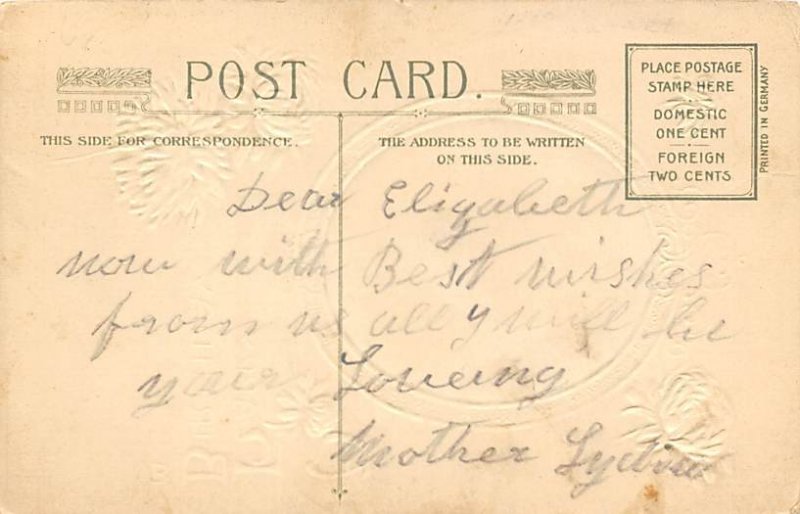 POST CARD.
THIS SIDE FOR CORRESPONDENCE.
THE ADDRESS TO BE WRITTEN
ON THIS SIDE.
PLACE POSTAGE
STAMP HERE
DOMESTIC
ONE CENT
FOREIGN
TWO CENTS
PRINTED IN GERMANY
Dear Elizabeth
now with Best wishes
from us all y will be
your Loveing
Mother